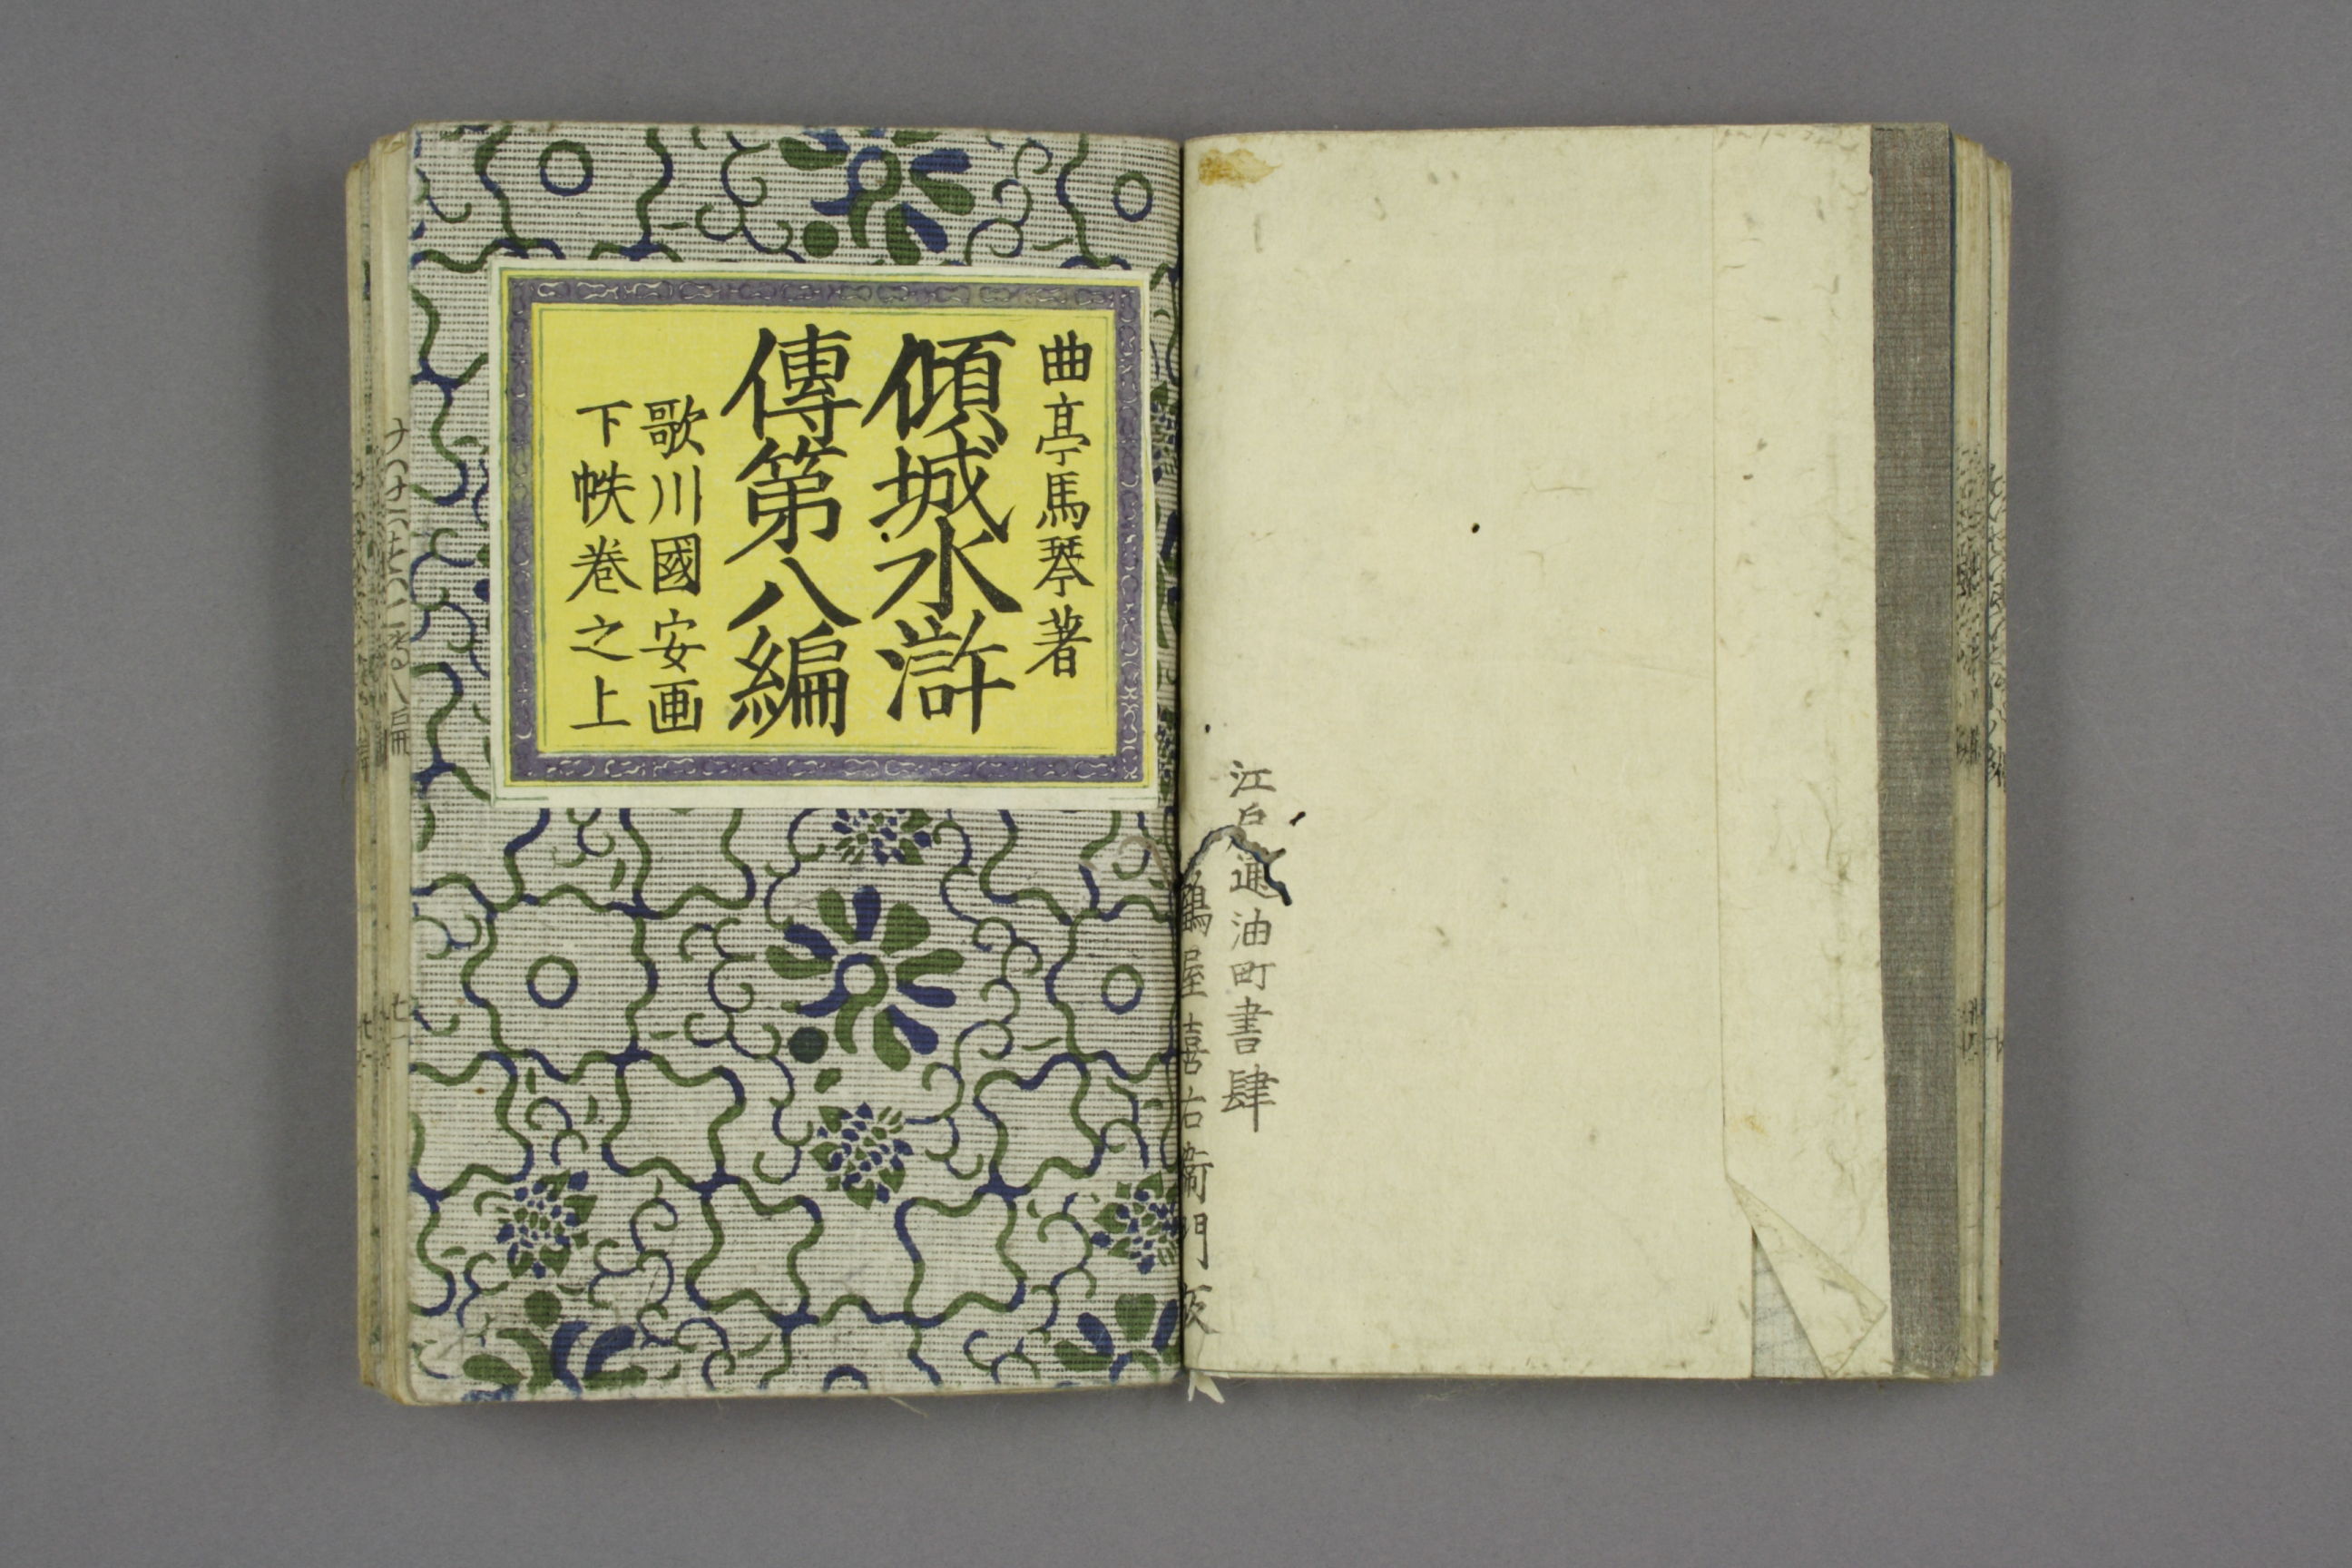 江戸通油町書肆
鶴屋喜右衞門版
曲亭馬琴著
傾城水滸
傳第八編
歌川國安画
下帙巻之上